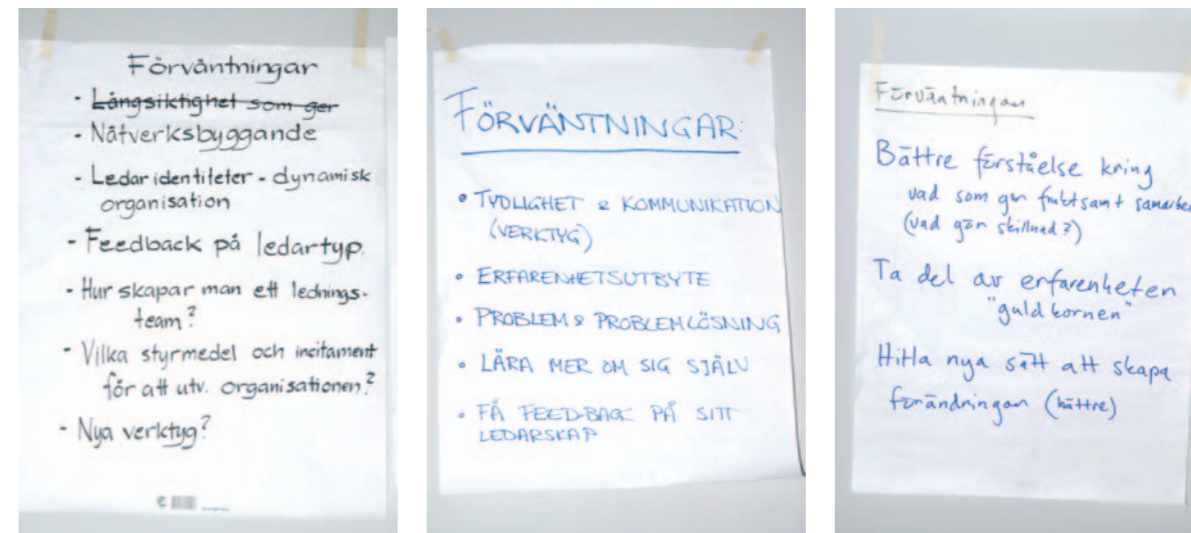 Förväntningar
- Långsiktighet som ger
- Nätverksbyggande
- Ledaridentiteter - dynamisk
organisation
- Feedback på ledartyp.
- Hur skapar man ett lednings-
team?
- Vilka styrmedel och incitament
för att utv. organisationen?
- Nya verktyg?
FÖRVÄNTNINGAR:
• TYDLIGHET & KOMMUNIKATION
(VERKTYG)
• ERFARENHETSUTBYTE
• PROBLEM & PROBLEMLÖSNING
• LÄRA MER OM SIG SJÄLV
• FÅ FEED-BACK PÅ SITT
LEDARSKAP
Förväntningar
Bättre förståelse kring
vad som ger fruktsamt samarbe
(vad gör skillnad?)
Ta del av erfarenheten
"guldkornen"
Hitta nya sätt att skapa
förändringar (bättre)